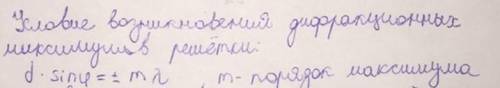 Условие возникновений дифракционных
максимумов решётки:
d · sinφ = ± mλ , m - порядок максимума